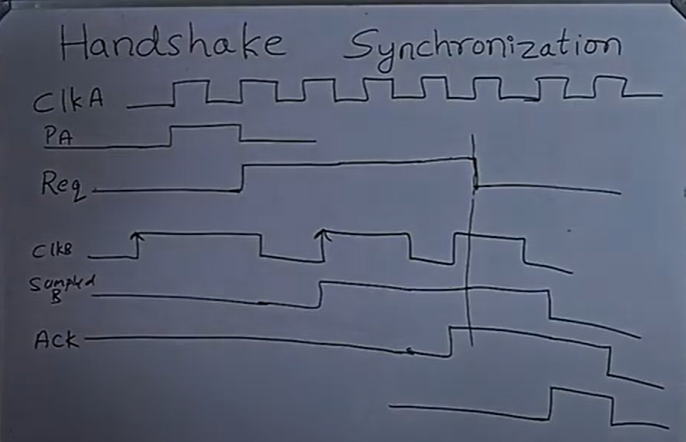 Handshake Synchronization
ClkA
PA
Req
ClkB
Sampled
B
Ack